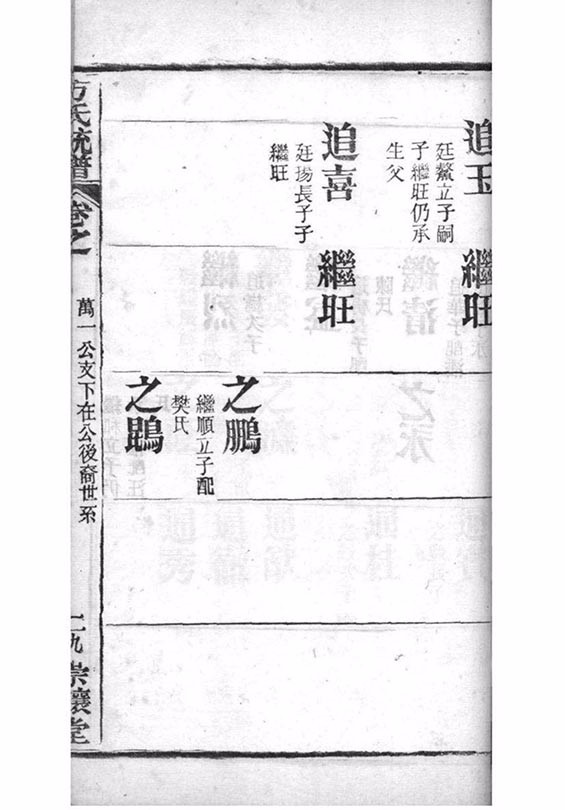 追玉
廷鰲立子嗣
子繼旺仍承
生父
繼旺
追喜
廷揚長子子
繼旺
繼旺
之鵬
繼順立子配
樊氏
之鵾
方氏統譜
卷之
萬一公支下在公後裔世系
二九
崇讓堂